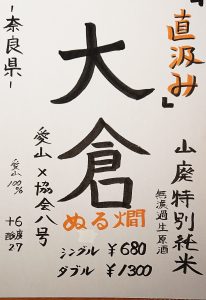 「直汲み」
山廃特別純米
無濾過生原酒
大倉
ぬる燗
シングル ￥680
ダブル ￥1300
愛山×協会八号
ー奈良県ー
愛山
100%
+6
酸度
2.7